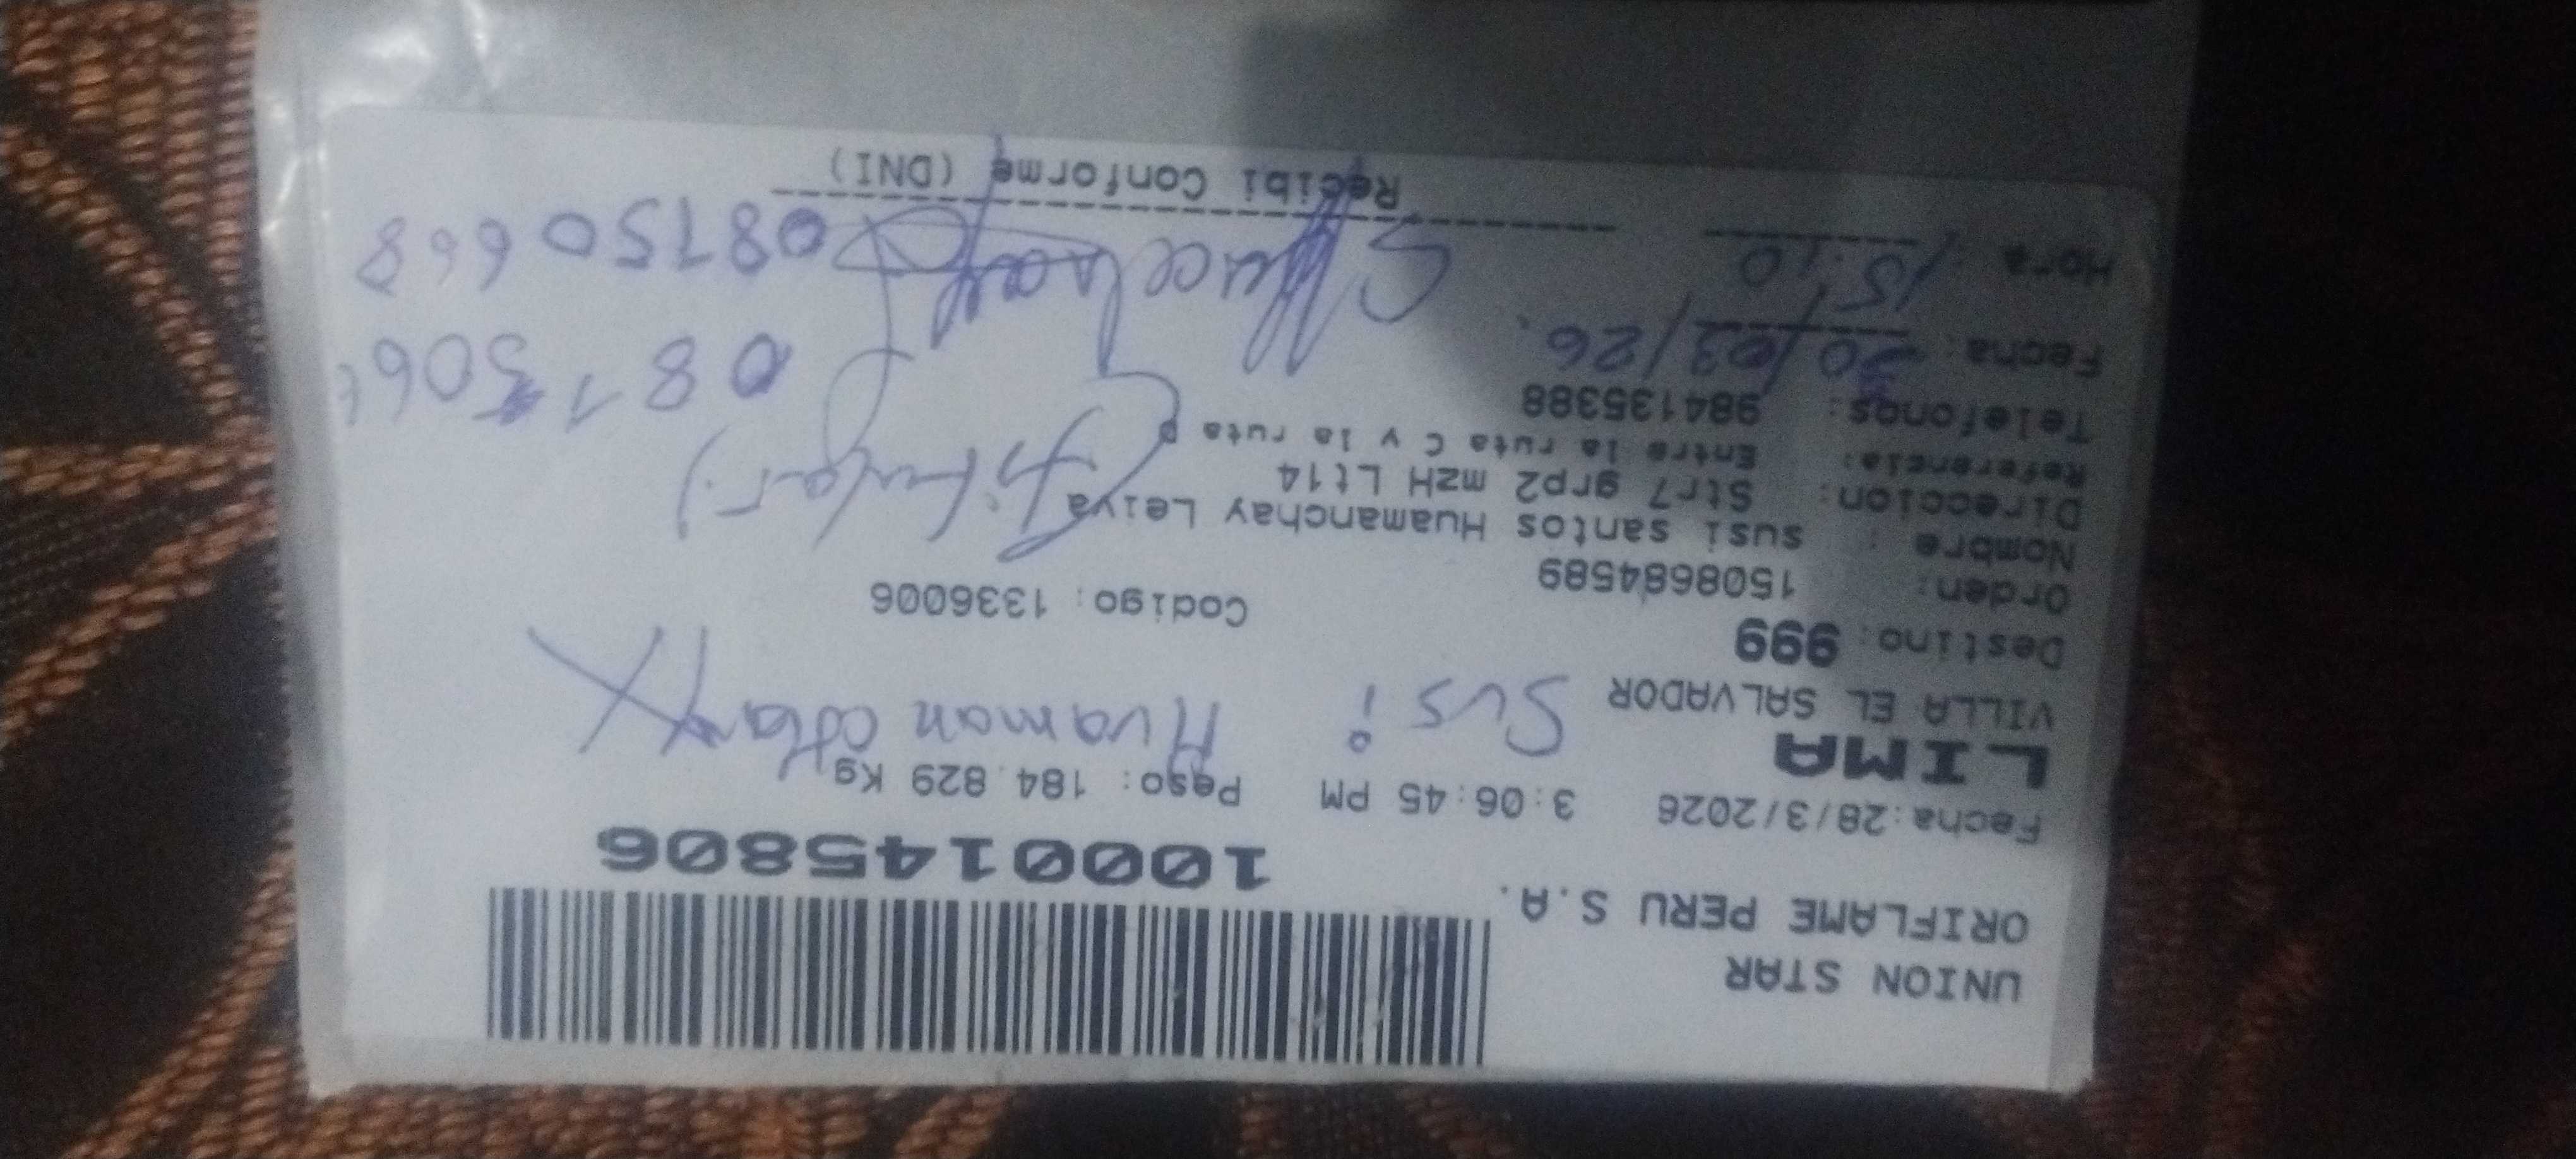 UNION STAR
ORIFLAME PERU S.A.
1000145806
Fecha:28/3/2026 3:06:45 PM Peso: 184.829 Kg
LIMA
VILLA EL SALVADOR Susi Huaman
Destino: 999
Orden: 1508684589 Codigo: 1336006
Nombre : susi santos Huamanchay Leiva
Direccion: Str7 grp2 mzH Lt14
Referencia: Entre la ruta C y la ruta
Telefonos: 984135388
Fecha: 30/03/26. (titular)
Hora : 15:10 08150668
Recibi Conforme (DNI)